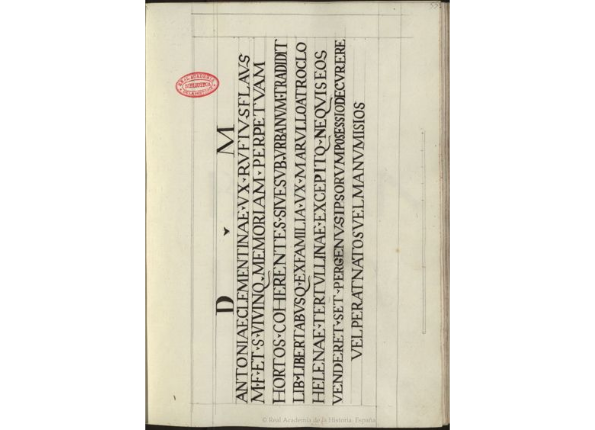 D M
ANTONIAECLEMENTINAE·VX·RVFIVSFLAVS
M·F·ET·S·VIVINQ·MEMORIAM·PERPETVAM
HORTOS·COHERENTES·SIVESVBVRBANVM·TRADIDIT
LIB·LIBERTABVSQ·EXFAMILIA·VX·MARVLLOATROCLO
HELENAE·TERTVLLINAE·EXCEPITQ·NEQVISEOS
VENDERET·SET·PERGENVSIPSORVMPOSESSIODECVRERE
VELPERATNATOSVELMANVMISIOS
© Real Academia de la Historia. España